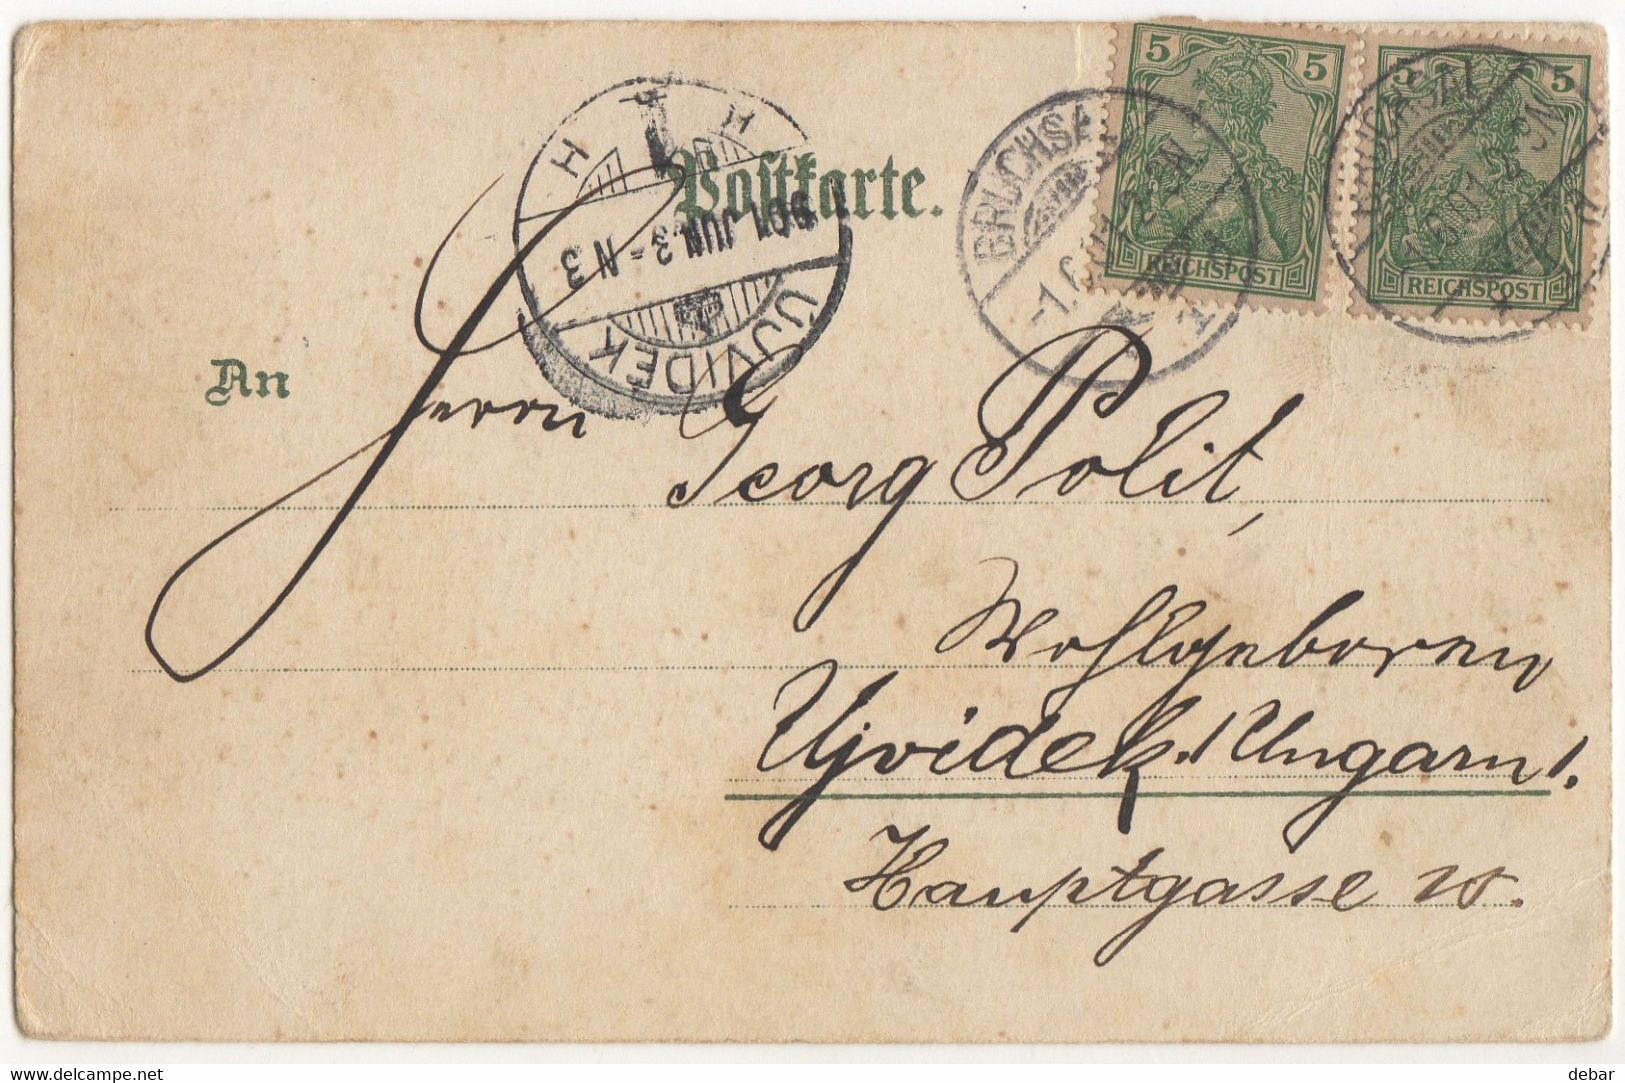 5 5 5 5
REICHSPOST REICHSPOST
BRUCHSAL
Postkarte.
901 JUN 3 - N 3
UJVIDEK
An
Herrn Georg Polit,
Wohlgeboren
Ujvidek. /Ungarn/.
Hauptgasse 10.
delcampe.net
debar